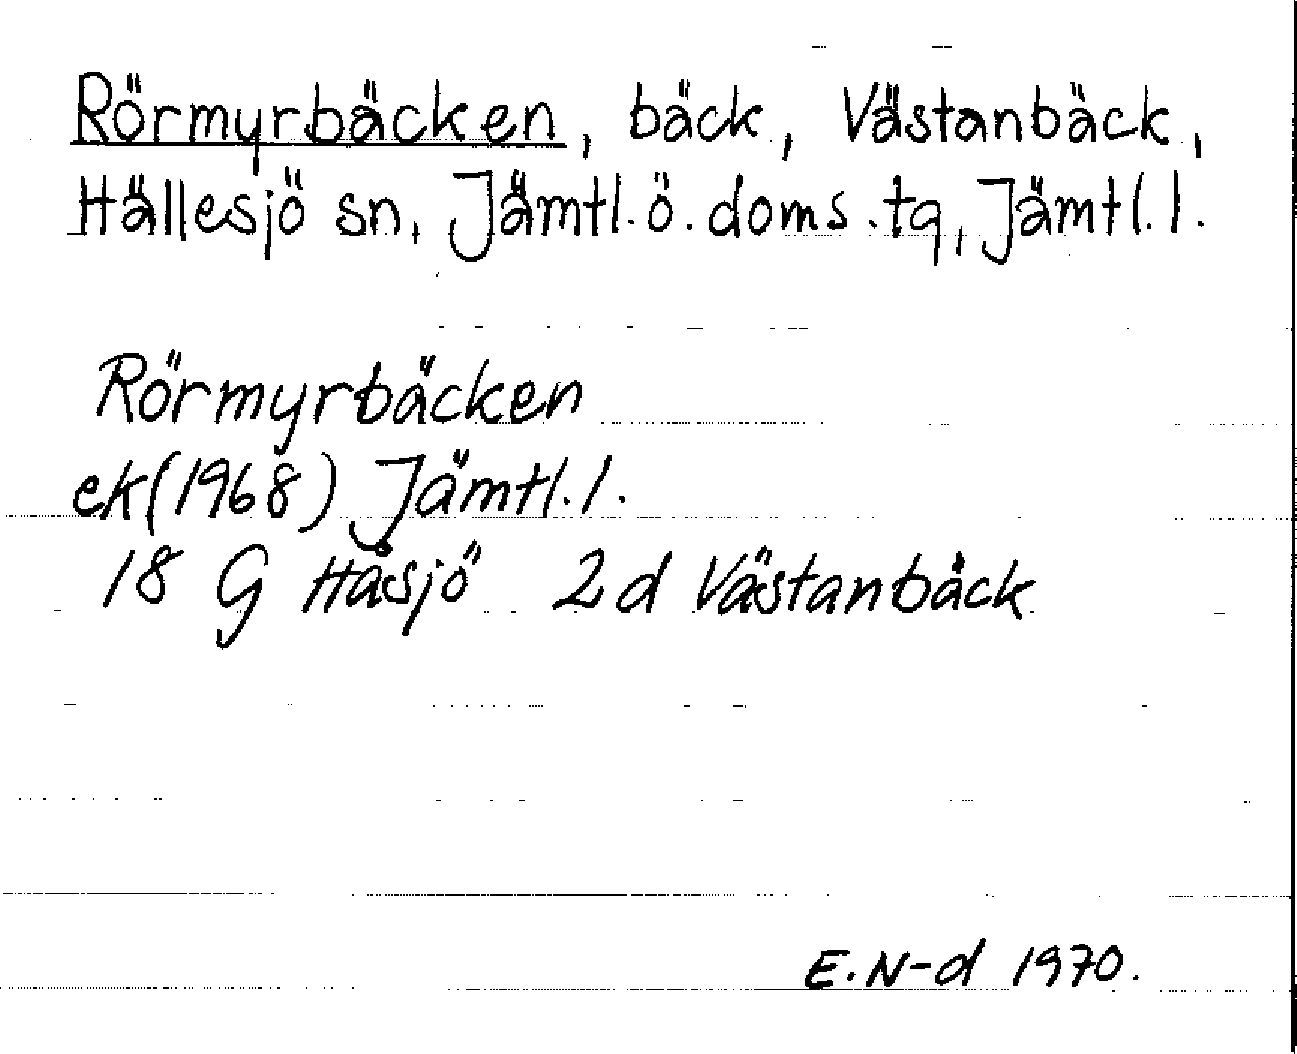 Rörmyrbäcken, bäck, Västanbäck,
Hällesjö sn, Jämtl. ö. doms. tg, Jämtl. l.
Rörmyrbäcken
ek (1968) Jämtl. l.
18 G Håsjö 2d Västanbäck
E. N-d 1970.